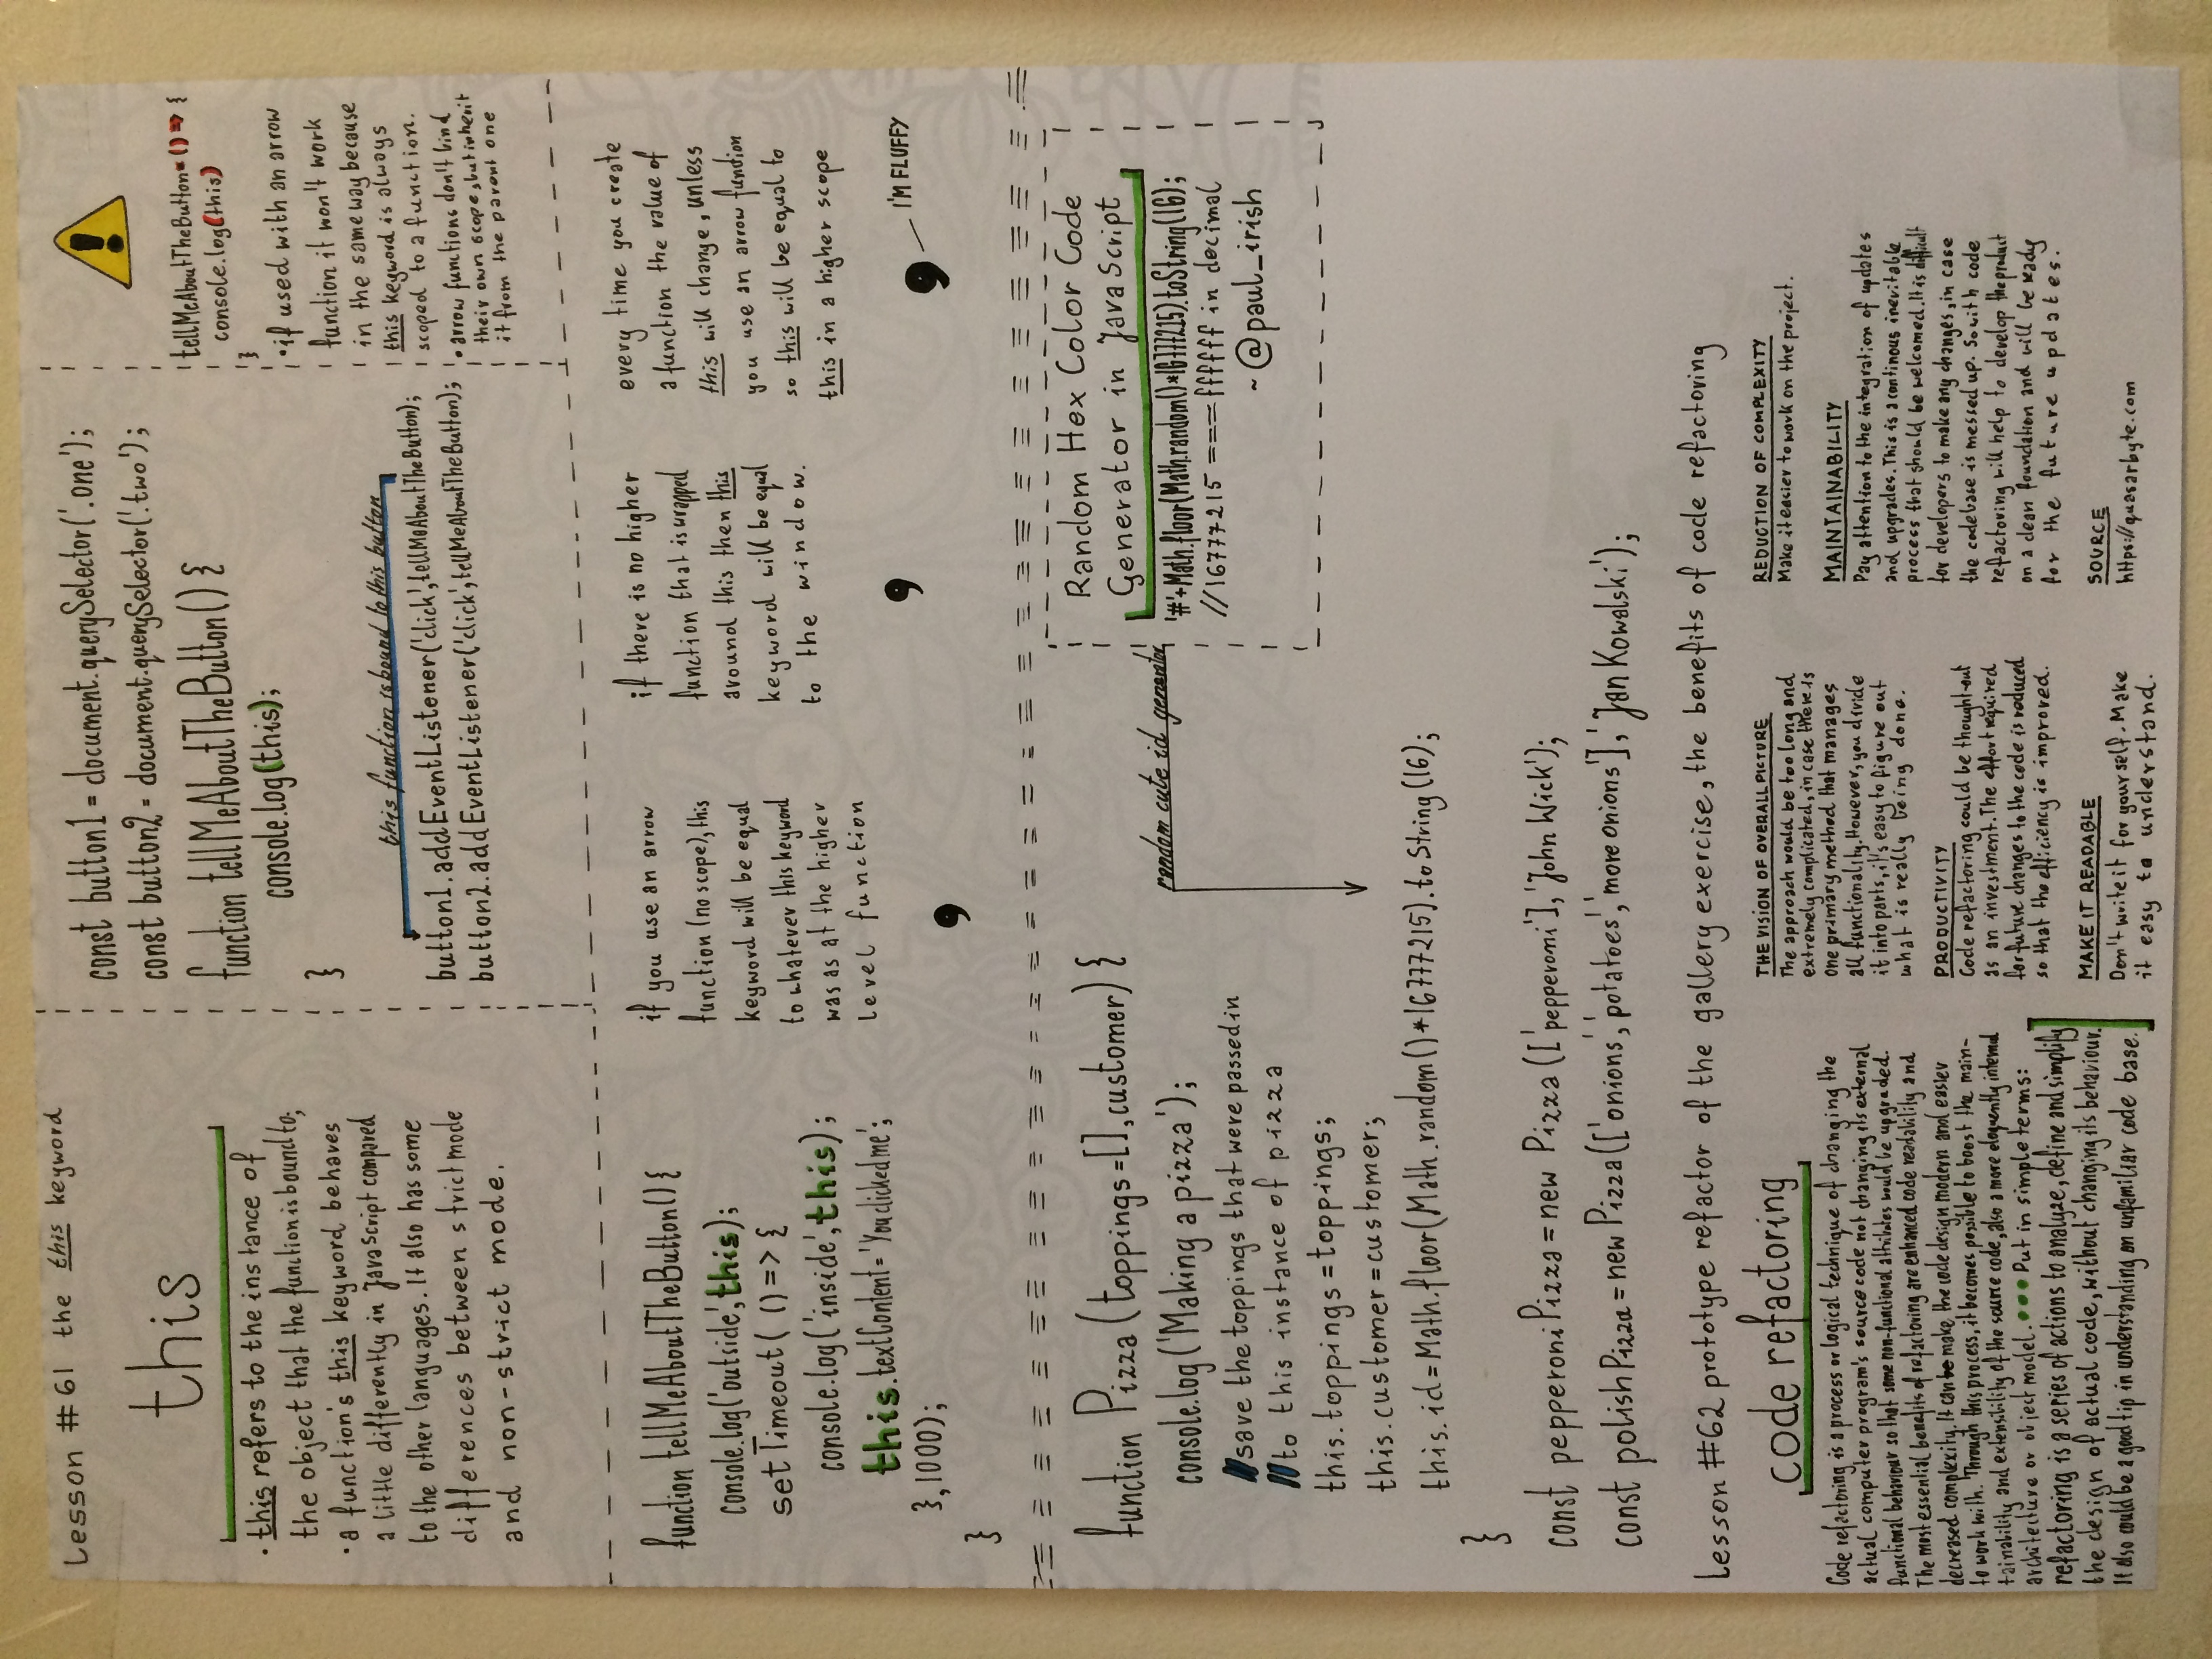 Lesson #61 the this keyword
this
• this refers to the instance of
the object that the function is bound to;
• a function's this keyword behaves
a little differently in JavaScript compared
to the other languages. It also has some
differences between strict mode
and non-strict mode.
const button1 = document.querySelector('.one');
const button2 = document.querySelector('.two');
function tellMeAboutTheButton() {
console.log(this);
}
this function is bound to this button
button1.addEventListener('click', tellMeAboutTheButton);
button2.addEventListener('click', tellMeAboutTheButton);
!
tellMeAboutTheButton = () => {
console.log(this)
}
• if used with an arrow
function it won't work
in the same way because
this keyword is always
scoped to a function.
• arrow functions don't bind
their own scope, but inherit
it from the parent one
function tellMeAboutTheButton() {
console.log('outside', this);
setTimeout( () => {
console.log('inside', this);
this.textContent = 'You clicked me';
}, 1000);
}
if you use an arrow
function (no scope), this
keyword will be equal
to whatever this keyword
was as at the higher
level function
,
if there is no higher
function that is wrapped
around this then this
keyword will be equal
to the window.
,
every time you create
a function the value of
this will change, unless
you use an arrow function
so this will be equal to
this in a higher scope
, I'M FLUFFY
function Pizza (toppings = [], customer) {
console.log('Making a pizza');
// save the toppings that were passed in
// to this instance of pizza
this.toppings = toppings;
this.customer = customer;
this.id = Math.floor(Math.random() * 16777215).toString(16);
}
random cute id generator
Random Hex Color Code
Generator in JavaScript
'#'+Math.floor(Math.random()*16777215).toString(16);
//16777215 === ffffff in decimal
~ @paul_irish
const pepperoniPizza = new Pizza (['pepperoni'], 'John Wick');
const polishPizza = new Pizza (['onions', 'potatoes', 'more onions'], 'Jan Kowalski');
Lesson #62 prototype refactor of the gallery exercise, the benefits of code refactoring
code refactoring
Code refactoring is a process or logical technique of changing the
actual computer program's source code not changing its external
functional behaviour so that some non-functional attributes would be upgraded.
The most essential benefits of refactoring are enhanced code readability and
decreased complexity. It can be make the code design modern and easier
to work with. Through this process, it becomes possible to boost the main-
tainability and extensibility of the source code, also a more eloquently internal
architecture or object model. ••• Put in simple terms:
refactoring is a series of actions to analyze, define and simplify
the design of actual code, without changing its behaviour.
It also could be a good tip in understanding an unfamiliar code base.
THE VISION OF OVERALL PICTURE
The approach would be too long and
extremely complicated, in case there is
one primary method that manages
all functionality. However, you divide
it into parts, it's easy to figure out
what is really being done.
PRODUCTIVITY
Code refactoring could be thought-out
as an investment. The effort required
for future changes to the code is reduced
so that the efficiency is improved.
MAKE IT READABLE
Don't write it for yourself. Make
it easy to understand.
REDUCTION OF COMPLEXITY
Make it easier to work on the project.
MAINTAINABILITY
Pay attention to the integration of updates
and upgrades. This is a continous inevitable
process that should be welcomed. It is difficult
for developers to make any changes, in case
the codebase is messed up. So with code
refactoring will help to develop the product
on a clean foundation and will be ready
for the future updates.
SOURCE
https://quasarbyte.com